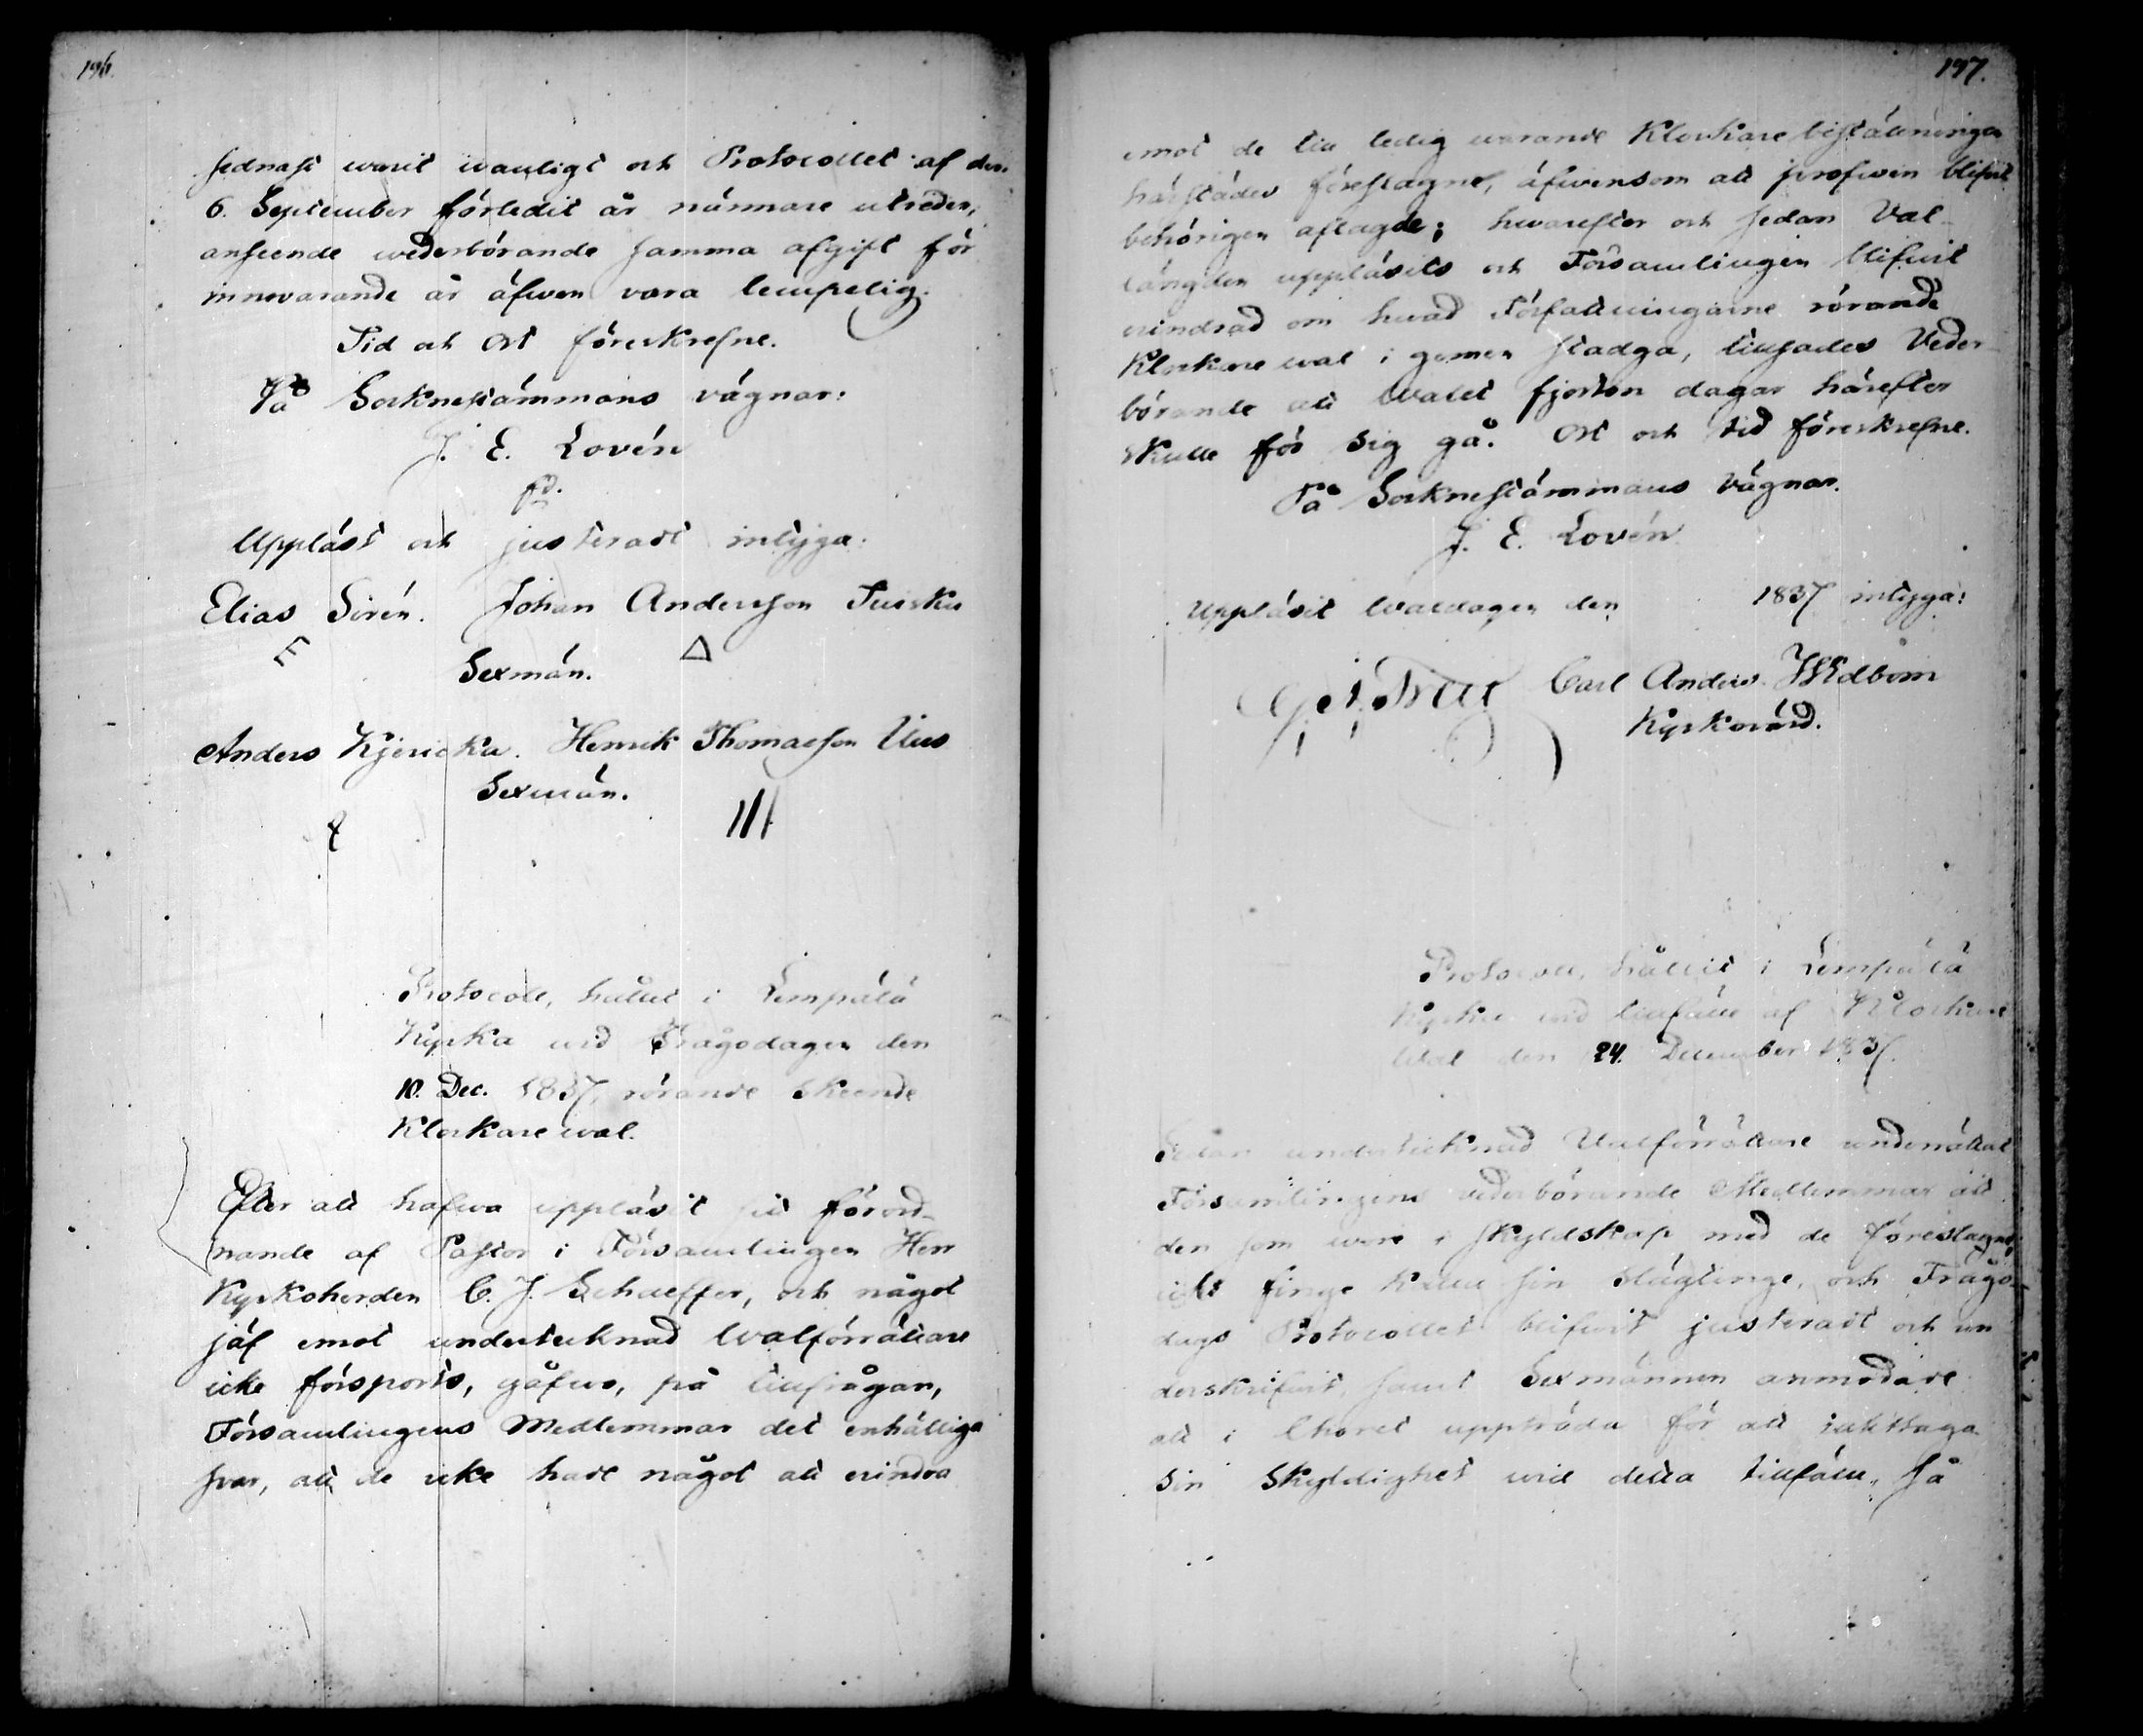 196.
sednast warit wanligt och Protocollet af den
6. September förledit år närmare utreder,
anseende wederbörande samma afgift för
innevarande år äfwen vara lempelig.
Tid och Ort föreskrefne.
På Socknestämmans vägnar:
J. E. Lovén
Uppläst och justeradt intyga:
Elias Sirén. Johan Andersson Tuisku
E Δ
Sexmän.
Anders Kjericka. Henrik Thomasson Uus
Sexmän.
III
Protocoll, hållet i Lempälä
Kyrka wid Frågodagen den
10. Dec. 1837, rörande skeende
Klockare wal.
Efter att hafwa uppläsit sit förord-
nande af Pastor i Församlingen Herr
Kyrkoherden C. J. Schaeffer, och något
jäf emot undertecknad Walförrättare
icke försports, gåfwo, på tillfrågan,
Församlingens Medlemmar det enhälliga
svar, att de icke hade något att erindra
197.
emot de till ledig warande Klockare beställningen
härstädes föreslagne, äfwensom att profwen blifvit
behörigen aflagde; hwarefter och sedan Val-
längden uppläsits och Församlingen blifwit
erindrad om hwad Författningarne rörande
Klockare wal i gemen stadga, tillsades Veder-
börande att Walet fjorton dagar härefter
skulle för sig gå. Ort och tid föreskrefne.
På Socknestämmans Vägnar.
J. E. Lovén
Uppläsit Waldagen den 1837 intyga:
Carl Anders Widbom
Kyrkovärd.
Protocoll, hållit i Lempälä
Kyrka wid tillfälle af Klockare
Wal den 24. December 1837.
Sedan undertecknad Valförrättare underrättat
Församlingens wederbörande Medlemmar att
den som wore i skyldskap med de föreslagne,
icke finge kalla sin släktinge, och Frågo-
dags Protocollet blifwit justeradt och un
derskrifwit, samt Sexmännen anmodade
att i Choret uppträda för att iakttaga
sin skyldighet wid detta tillfälle, så